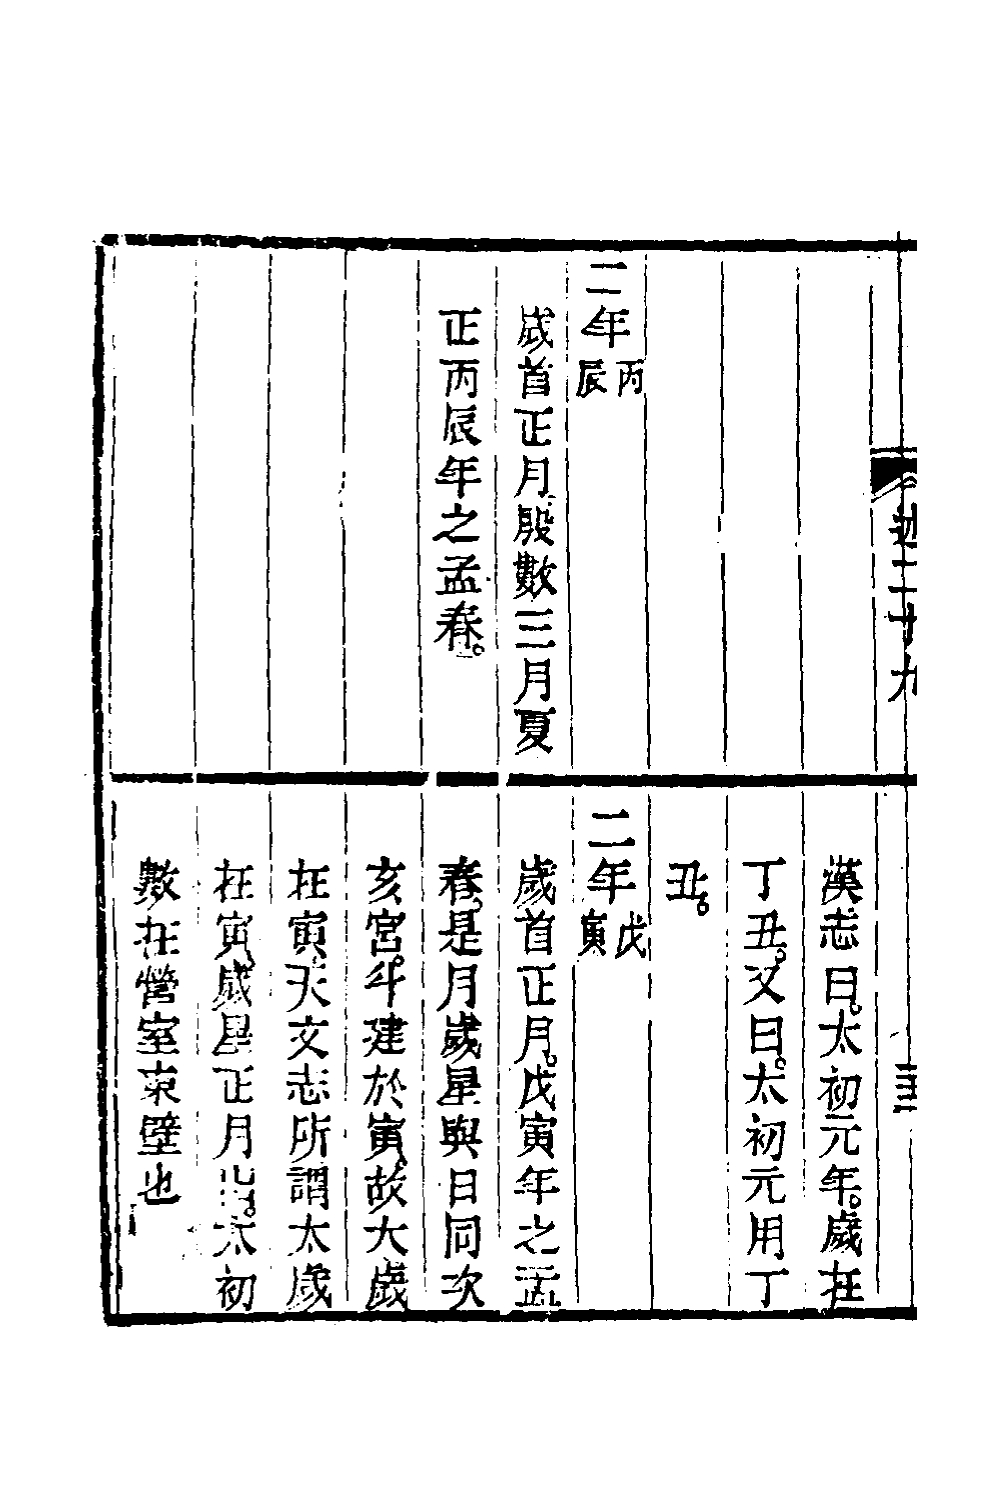 述二十九
三
二年丙辰
歲首正月殷數三月夏
正丙辰年之孟春。
漢志曰。太初元年。歲在
丁丑。又曰。太初元用丁
丑。
二年戊寅
歲首正月。戊寅年之孟
春。是月歲星與日同次
亥宮。斗建於寅。故大歲
在寅。天文志所謂太歲
在寅。歲星正月出。太初
數在營室東壁也